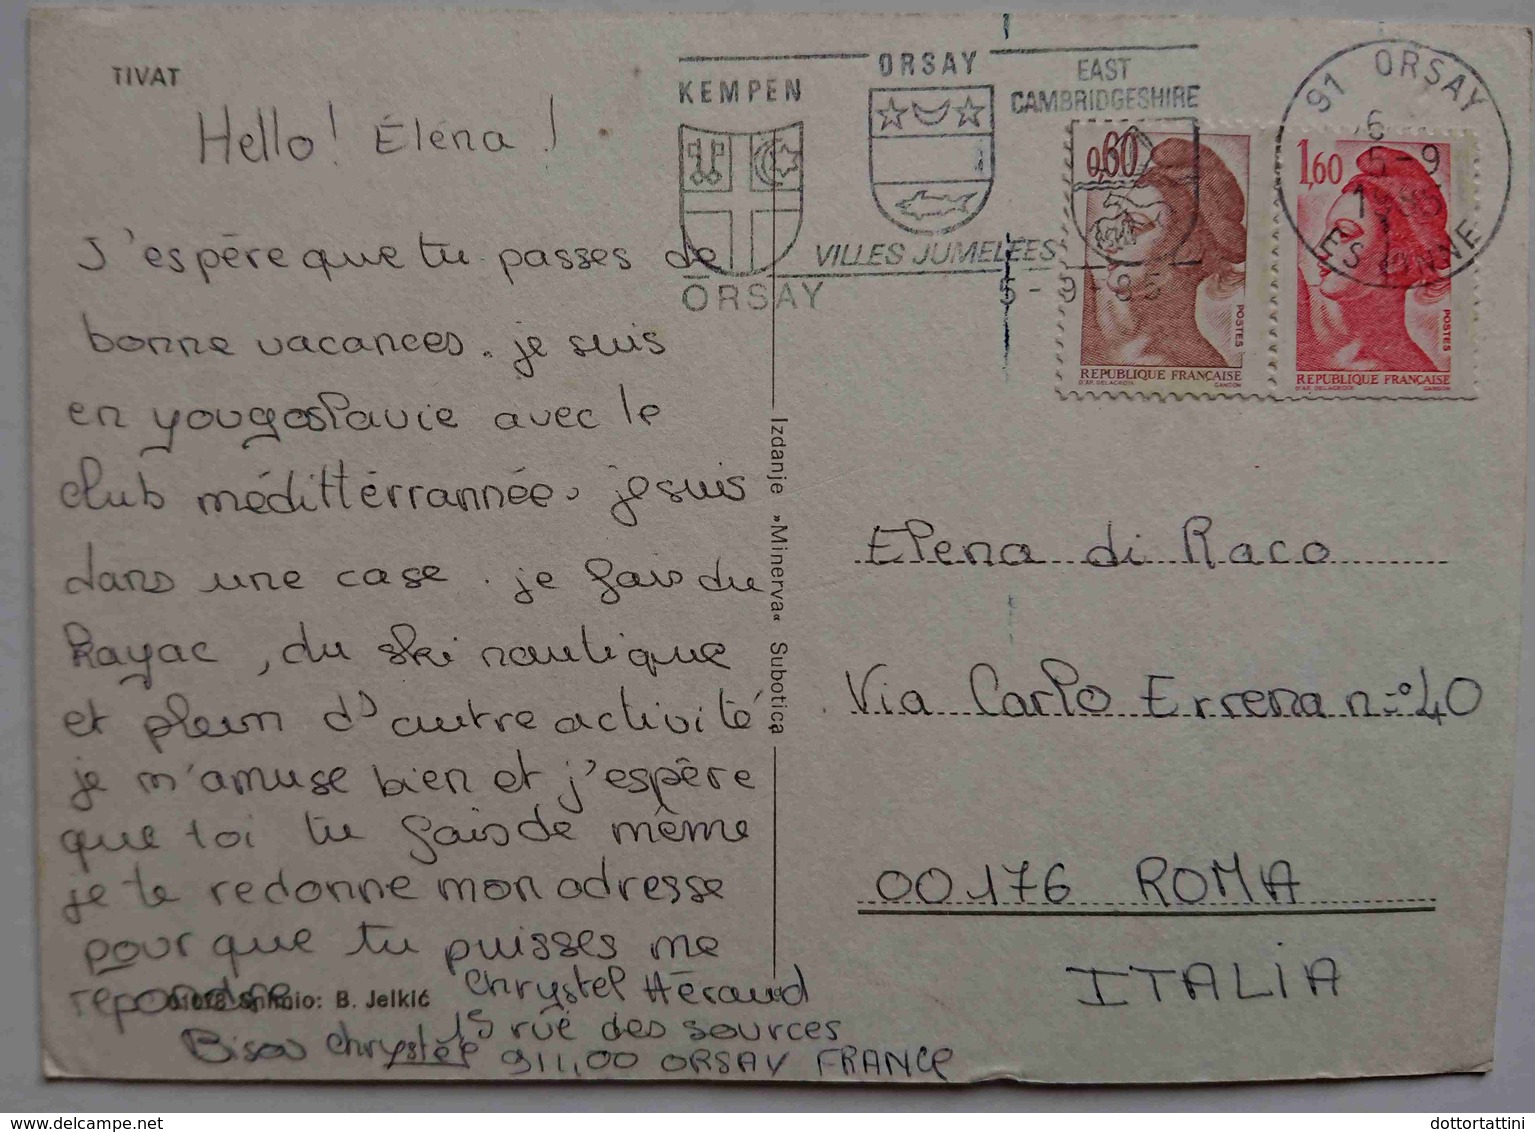 TIVAT
Hello! Éléna!
J'espère que tu passes de
bonne vacances. je suis
en yougoslavie avec le
club médittérrannée, je suis
dans une case. je fais du
Kayac, du ski nautique
et plein d'autre activité
je m'amuse bien et j'espère
que toi tu fais de même
je te redonne mon adresse
pour que tu puisses me
repondre
Snimio: B. Jelkić
Bisou Chrystèle
Chrystel Héraud
15 rue des sources
91100 ORSAY FRANCE
Izdanje »Minerva« Subotica
KEMPEN
ORSAY
EAST
CAMBRIDGESHIRE
VILLES JUMELEES
ORSAY
5-9-85
91 ORSAY
6
5-9
ESSONNE
0,60
POSTES
REPUBLIQUE FRANÇAISE
D'AP. DELACROIX GANDON
1,60
POSTES
REPUBLIQUE FRANÇAISE
D'AP. DELACROIX GANDON
Elena di Raco
Via Carlo Errena n°40
00176 ROMA
ITALIA
dottortattini